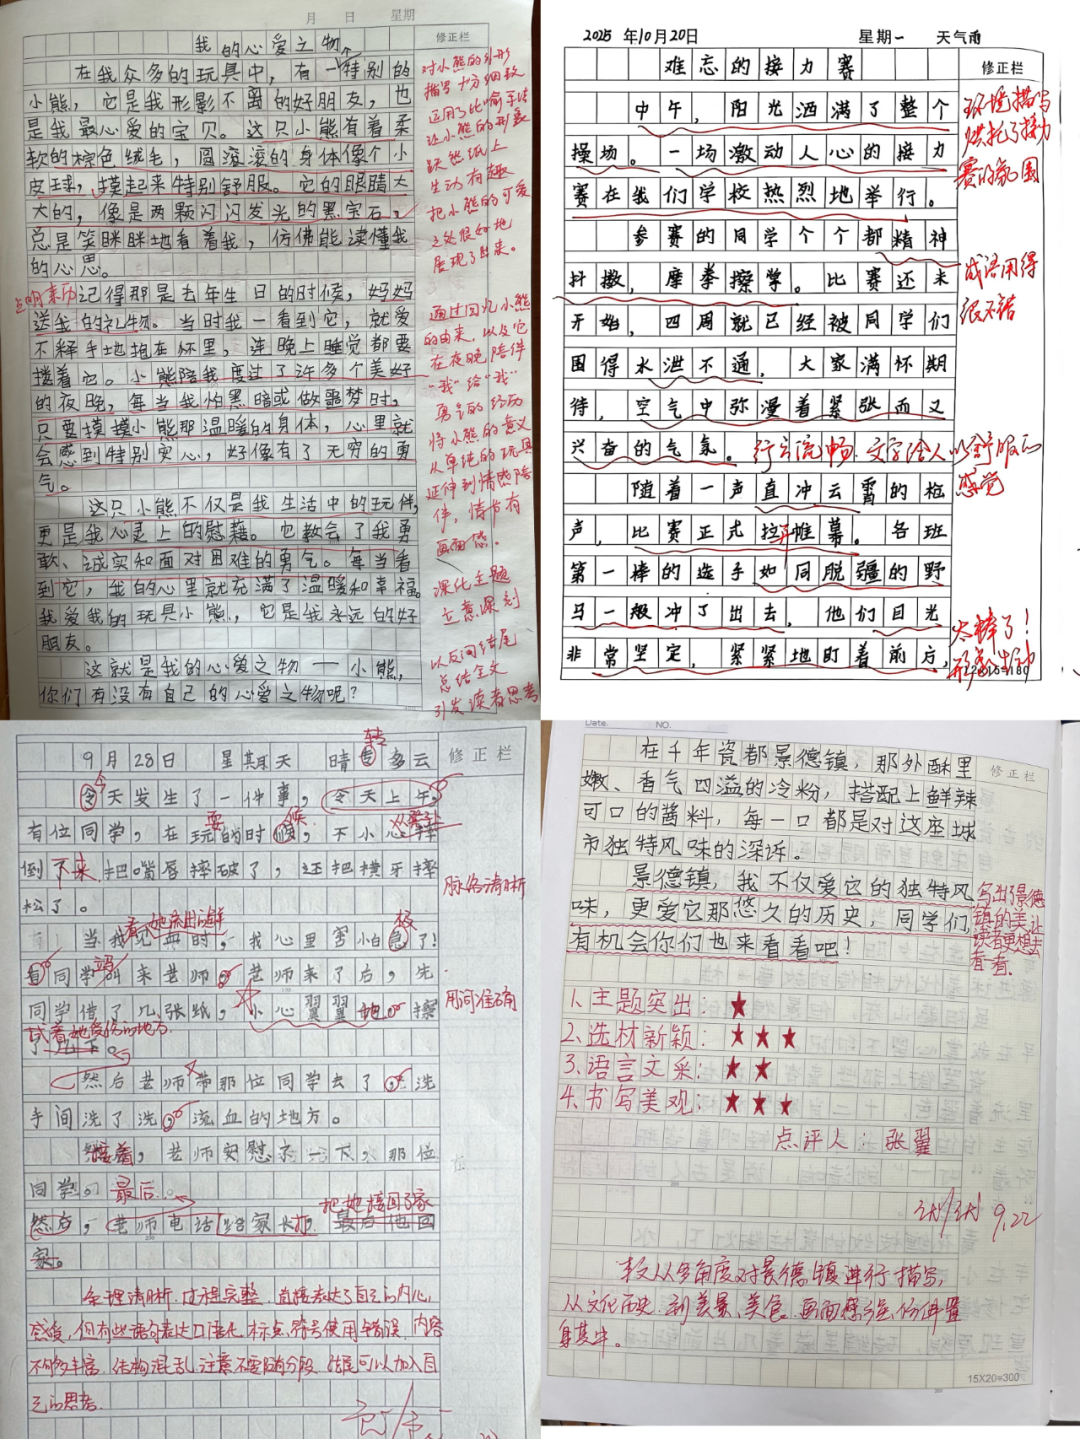 月 日 星期
修正栏
我的心爱之物
在我众多的玩具中，有一特别的
小熊，它是我形影不离的好朋友，也
是我最心爱的宝贝。这只小熊有着柔
软的棕色绒毛，圆滚滚的身体像个小
皮球，摸起来特别舒服。它的眼睛大
大的，像是两颗闪闪发光的黑宝石，
总是笑眯眯地看着我，仿佛能读懂我
的心思。
点明来历
记得那是去年生日的时候，妈妈
送我的礼物。当时我一看到它，就爱
不释手地抱在怀里，连晚上睡觉都要
搂着它。小熊陪我度过了许多个美好
的夜晚，每当我怕黑暗或做噩梦时，
只要摸摸小熊那温暖的身体，心里就
会感到特别安心，好像有了无穷的勇
气。
这只小熊不仅是我生活中的玩伴，
更是我心灵上的慰藉。它教会了我勇
敢、诚实和面对困难的勇气。每当看
到它，我的心里就充满了温暖和幸福。
我爱我的玩具小熊，它是我永远的好
朋友。
这就是我的心爱之物——小熊，
你们有没有自己的心爱之物呢？
对小熊的外形
描写十分细致
运用了比喻手法
让小熊的形象
跃然纸上
生动有趣
把小熊的可爱
之处很好地
展现了出来。
通过回忆小熊
的由来，以及它
在夜晚陪伴
“我”给“我”
勇气的经历
将小熊的意义
从单纯的玩具
延伸到情感陪
伴，情节有
画面感。
深化主题
立意深刻
以反问结尾
总结全文
引发读者思考
2025 年10月20日 星期一 天气雨
难忘的接力赛
修正栏
中午，阳光洒满了整个
操场。一场激动人心的接力
赛在我们学校热烈地举行。
参赛的同学个个都精神
抖擞，摩拳擦掌。比赛还未
开始，四周就已经被同学们
围得水泄不通，大家满怀期
待，空气中弥漫着紧张而又
兴奋的气氛。
行云流畅，文字给人以舒服的
感觉
随着一声直冲云霄的枪
声，比赛正式拉开帷幕。各班
第一棒的选手如同脱缰的野
马一般冲了出去，他们目光
非常坚定，紧紧地盯着前方，
环境描写
烘托了接力
赛的氛围
成语用得
很不错
太棒了！
形象生动
9月28日 星期天 晴转多云
修正栏
今天发生了一件事，今天上午，
有位同学，在玩耍的时候，不小心摔
倒下来，把嘴唇摔破了，还把横牙摔
松了。
脉络清晰
看她流出的鲜
当我见血时，我心里害怕极了！
同学叫来老师，老师来了后，先
同学借了几张纸，小心翼翼地擦
用词准确
试着她受伤的地方
了几下。
然后老师带那位同学去了洗
手间洗了洗流血的地方。
接着，老师安慰了一下，那位
同学。最后
把她接回了家
然后，老师电话给家长打，最后他回
家。
条理清晰，过程完整，直接表达了自己的内心
感受，但有些语句表达口语化，标点符号使用错误，内容
不够丰富，结构混乱，注意不要随意分段，结尾可以加入自
己的思考。
Date. NO.
在千年瓷都景德镇，那外酥里
嫩、香气四溢的冷粉，搭配上鲜辣
可口的酱料，每一口都是对这座城
市独特风味的深诉。
景德镇，我不仅爱它的独特风
味，更爱它那悠久的历史，同学们，
有机会你们也来看看吧！
修正栏
写出了景德
镇的美，让
读者更想去
看看。
1.主题突出：★
2.选材新颖：★★★
3.语言文采：★★
4.书写美观：★★★
点评人：张翼
9.22
本文从多角度对景德镇进行描写，
从文化历史，到美景、美食，画面感强，仿佛置
身其中。
15X20=300